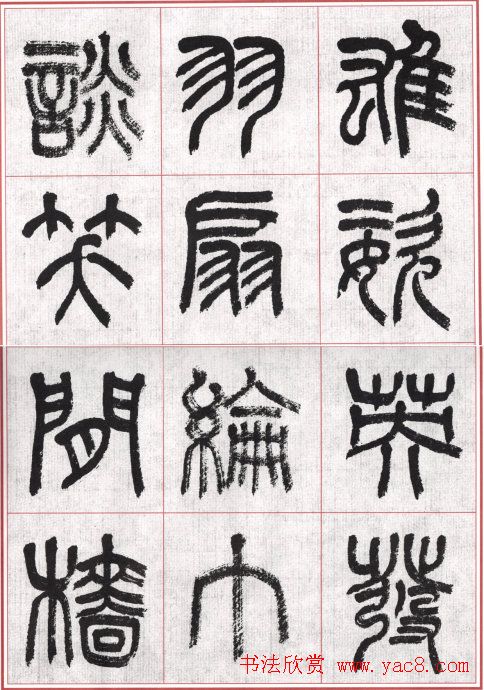 雄姿英發
羽扇綸巾
談笑閒檣
书法欣赏 www.yac8.com